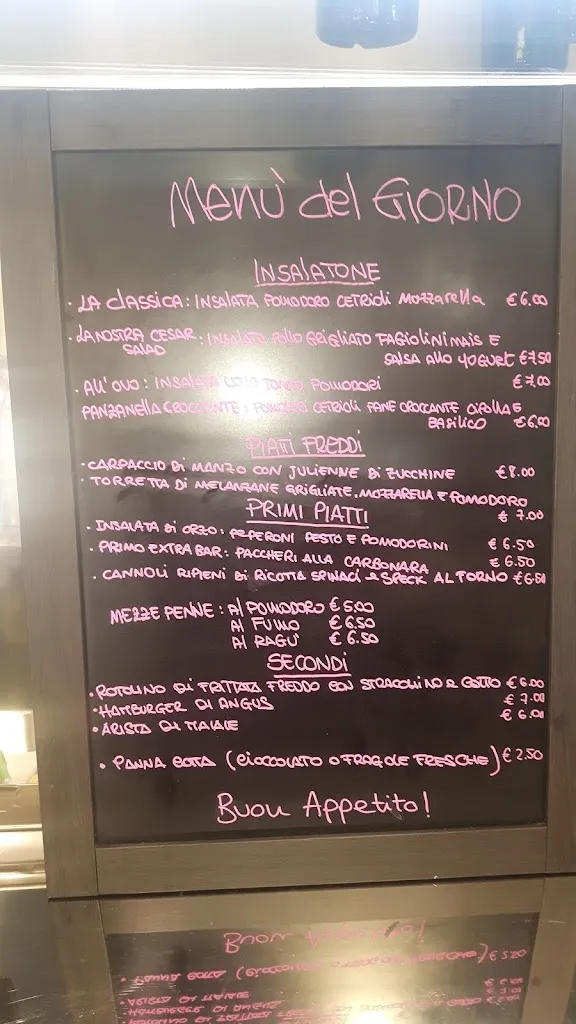 Menù del GIORNO
INSALATONE
• LA CLASSICA: INSALATA POMODORO CETRIOLI MOZZARELLA €6.00
• LA NOSTRA CESAR SALAD : INSALATA POLLO GRIGLIATO FAGIOLINI MAIS E
SALSA ALLO YOGURT €7.50
• ALL'UOVO: INSALATA UOVO TONNO POMODORI €7.00
PANZANELLA CROCCANTE: POMODORO CETRIOLI PANE CROCCANTE CIPOLLA E
BASILICO €6.00
PIATI FREDDI
• CARPACCIO DI MANZO CON JULIENNE DI ZUCCHINE €8.00
• TORRETTA DI MELANZANE GRIGLIATE, MOZZARELLA E POMODORO
€ 7.00
PRIMI PIATTI
• INSALATA DI ORZO: PEPERONI PESTO E POMODORINI € 6.50
• PRIMO EXTRA BAR: PACCHERI ALLA CARBONARA € 6.50
• CANNOLI RIPIENI DI RICOTTA SPINACI e SPECK AL FORNO €6.50
MEZZE PENNE: AL POMODORO € 5.00
AL FUMO € 6.50
AL RAGU' € 6.50
SECONDI
• ROTOLINO DI FRITTATA FREDDO CON STRACCHINO e COTTO €6.00
• HAMBURGER DI ANGUS € 7.00
• ARISTA DI MAIALE € 6.00
• PANNA COTTA (CIOCCOLATO O FRAGOLE FRESCHE) €2.50
Buon Appetito!